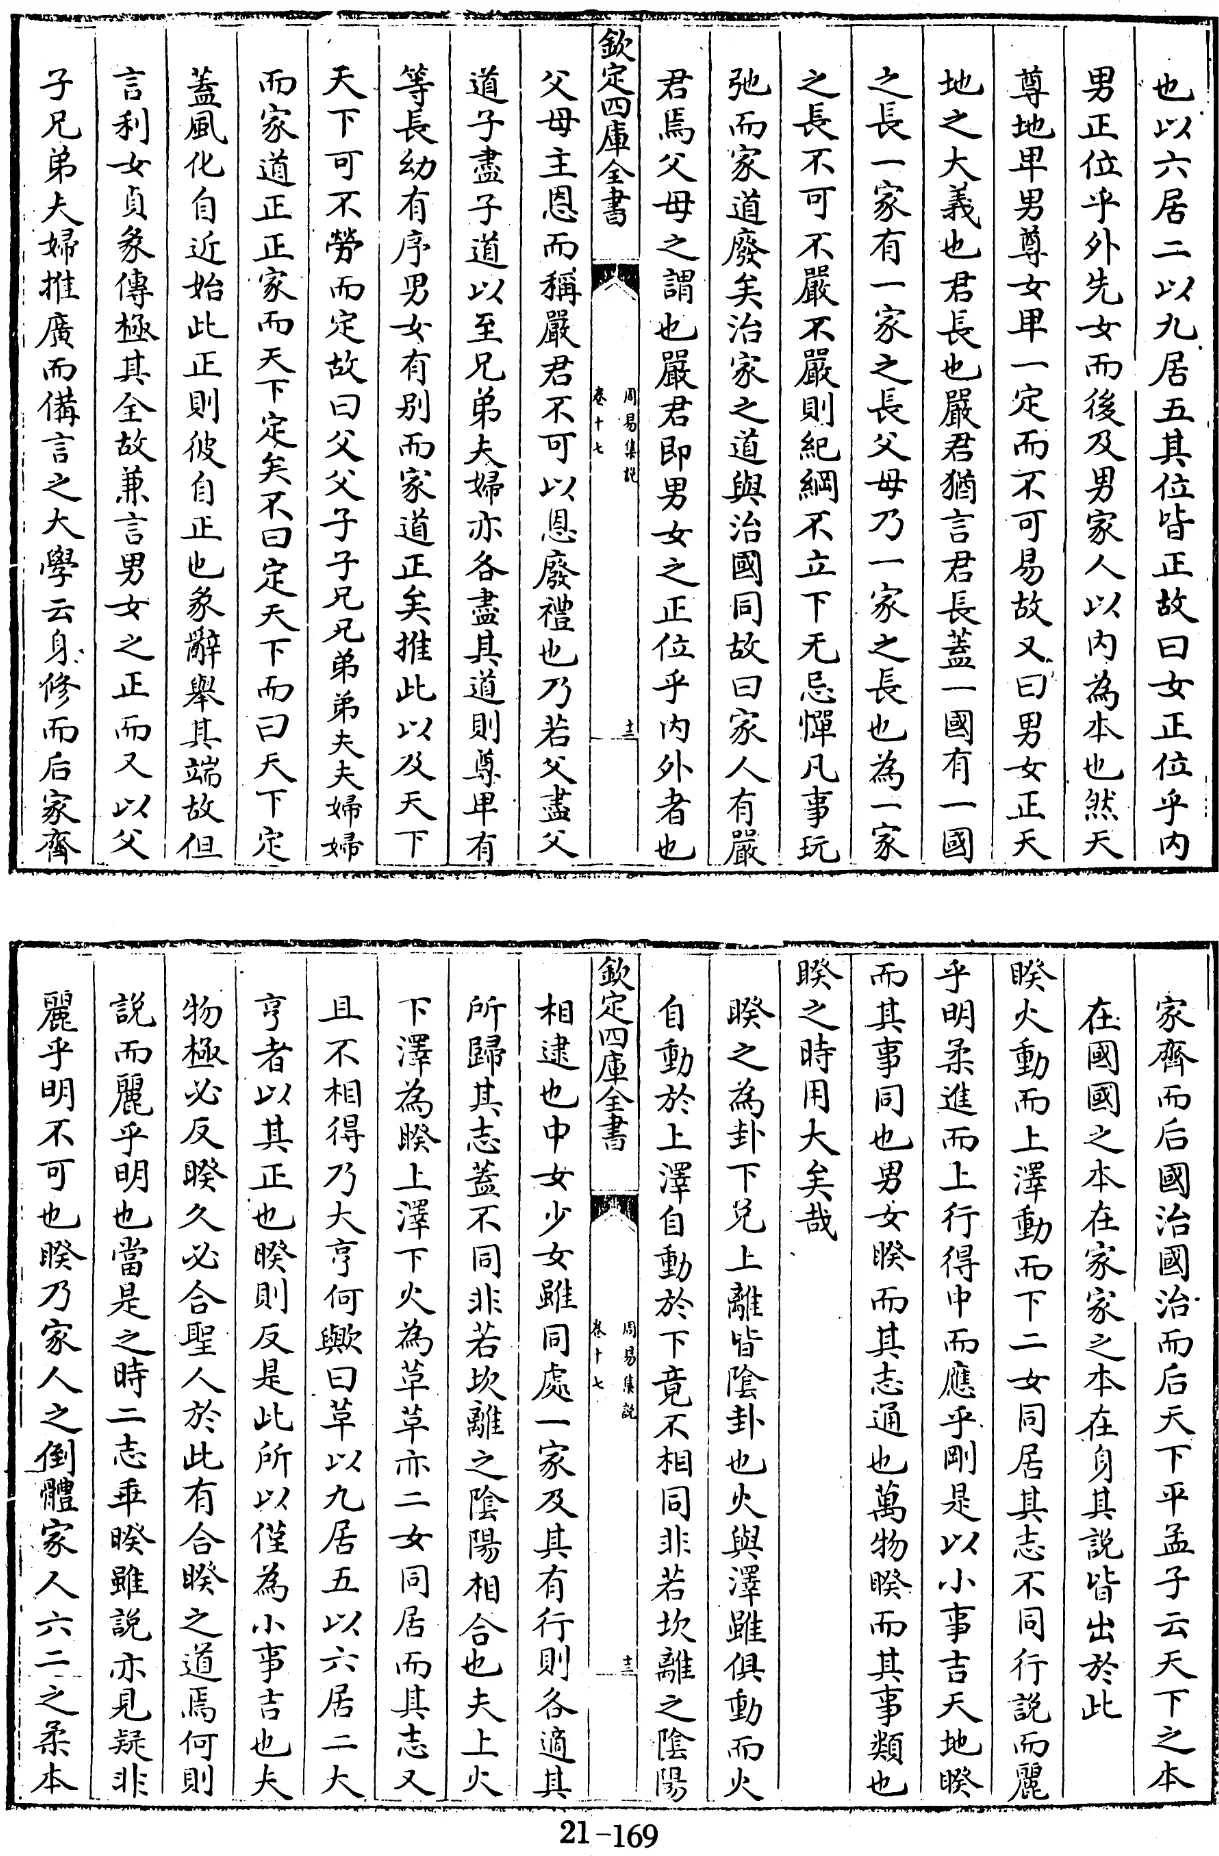 也以六居二以九居五其位皆正故曰女正位乎内
男正位乎外先女而後及男家人以内為本也然天
尊地卑男尊女卑一定而不可易故又曰男女正天
地之大義也君長也嚴君猶言君長蓋一國有一國
之長一家有一家之長父母乃一家之長也為一家
之長不可不嚴不嚴則紀綱不立下无忌憚凡事玩
弛而家道廢矣治家之道與治國同故曰家人有嚴
君焉父母之謂也嚴君即男女之正位乎内外者也
欽定四庫全書
周易集説
卷十七
十二
父母主恩而稱嚴君不可以恩廢禮也乃若父盡父
道子盡子道以至兄弟夫婦亦各盡其道則尊卑有
等長幼有序男女有别而家道正矣推此以及天下
天下可不勞而定故曰父父子子兄兄弟弟夫夫婦婦
而家道正正家而天下定矣不曰定天下而曰天下定
蓋風化自近始此正則彼自正也彖辭舉其端故但
言利女貞彖傳極其全故兼言男女之正而又以父
子兄弟夫婦推廣而備言之大學云身修而后家齊
家齊而后國治國治而后天下平孟子云天下之本
在國國之本在家家之本在身其説皆出於此
睽火動而上澤動而下二女同居其志不同行説而麗
乎明柔進而上行得中而應乎剛是以小事吉天地睽
而其事同也男女睽而其志通也萬物睽而其事類也
睽之時用大矣哉
睽之為卦下兌上離皆陰卦也火與澤雖俱動而火
自動於上澤自動於下竟不相同非若坎離之陰陽
欽定四庫全書
周易集説
卷十七
十三
相逮也中女少女雖同處一家及其有行則各適其
所歸其志蓋不同非若坎離之陰陽相合也夫上火
下澤為睽上澤下火為革革亦二女同居而其志又
且不相得乃大亨何歟曰革以九居五以六居二大
亨者以其正也睽則反是此所以僅為小事吉也夫
物極必反睽久必合聖人於此有合睽之道焉何則
説而麗乎明也當是之時二志乖睽雖説亦見疑非
麗乎明不可也睽乃家人之倒體家人六二之柔本
21-169